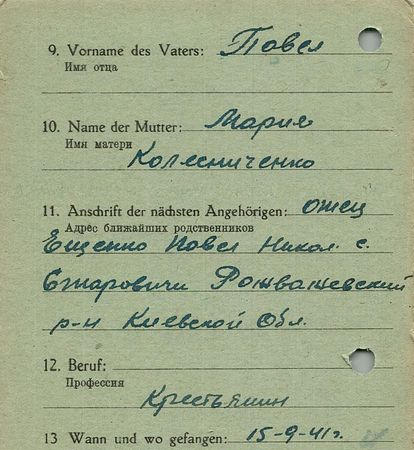 9. Vorname des Vaters: Повел
Имя отца
10. Name der Mutter: Мария
Имя матери
Колесниченко
11. Anschrift der nächsten Angehörigen: отец
Адрес ближайших родственников
Ещенко Повел Никол. с.
Старовичи Рожвашевский
р-н Киевской Обл.
12. Beruf:
Профессия
Крестьянин
13 Wann und wo gefangen: 15-9-41г.